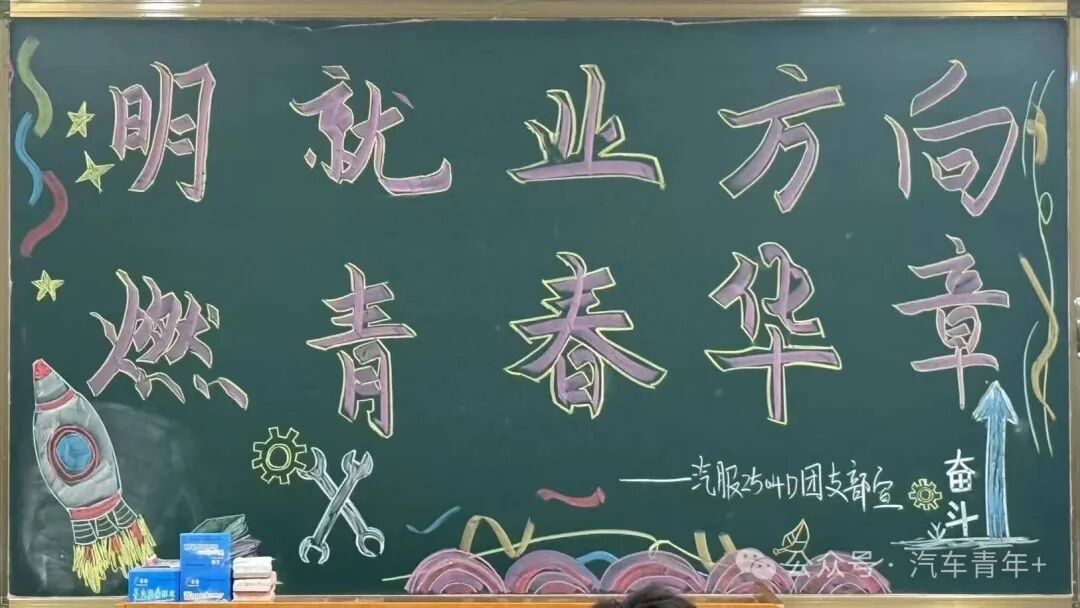 明就业方向
燃青春华章
——汽服2504D团支部宣
奋斗
公众号·汽车青年+